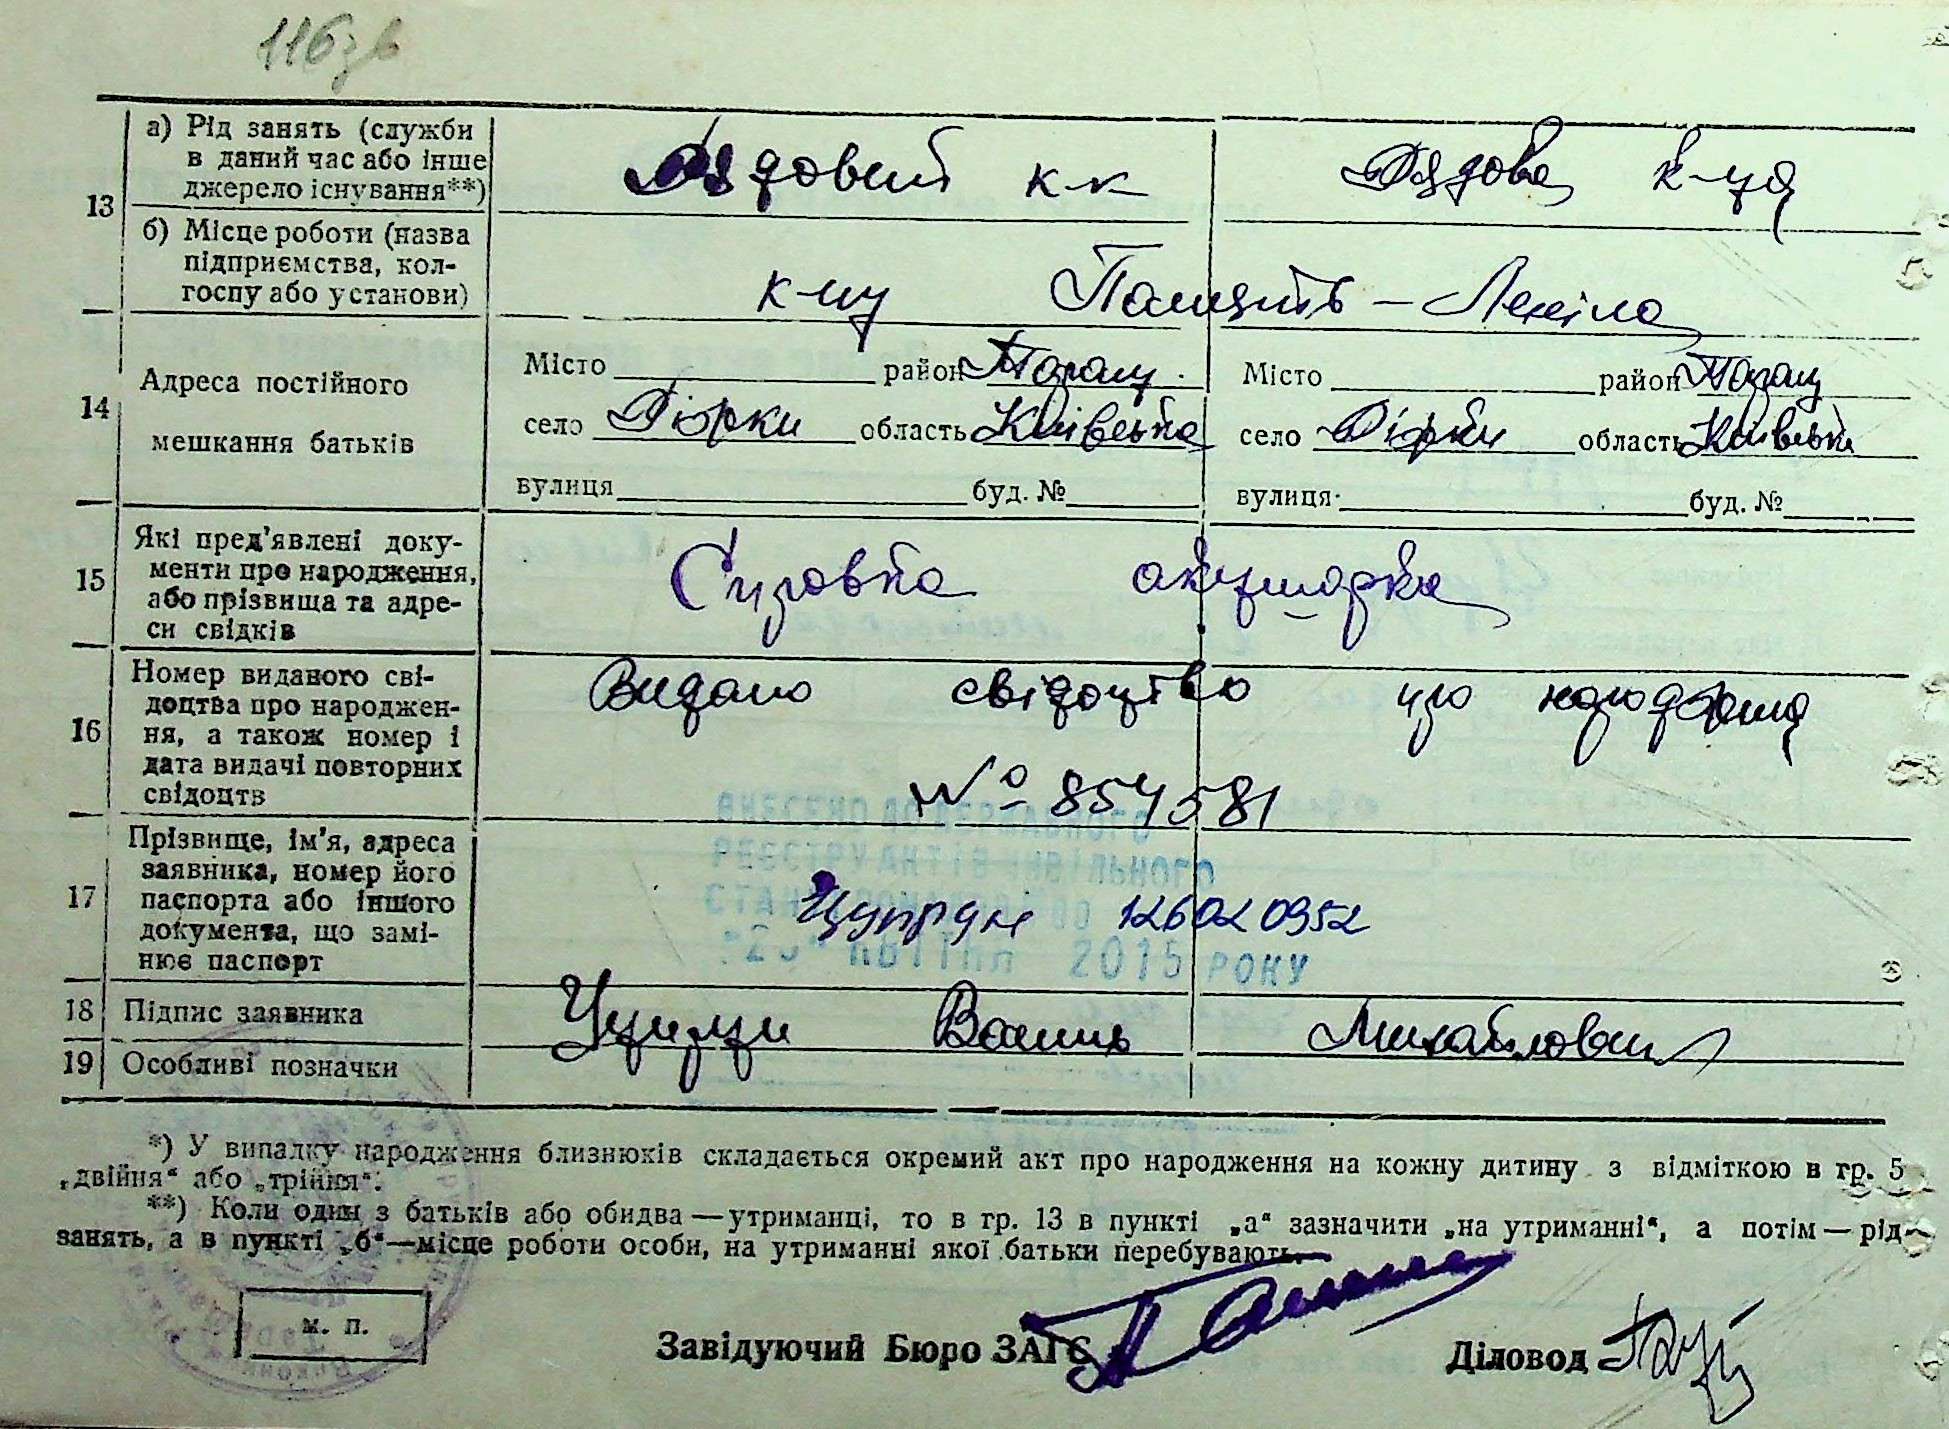 116 зв
13 а) Рід занять (служби в даний час або інше джерело існування**) Рядовий к-к Рядова к-ця
б) Місце роботи (назва підприємства, колгоспу або установи) к-пу Память-Леніна
14 Адреса постійного мешкання батьків
Місто район Таращ. Місто район Таращ
село область Київська село область Київська
вулиця буд. № вулиця буд. №
15 Які пред’явлені документи про народження, або прізвища та адреси свідків акушорка
16 Номер виданого свідоцтва про народження, а також номер і дата видачі повторних свідоцтв Видано свідоцтво про народження
№ 854581
ВНЕСЕНО ДО ДЕРЖАВНОГО
РЕЄСТРУ АКТІВ ЦИВІЛЬНОГО
СТАНУ ГРОМАДЯН
КВІТНЯ 2015 РОКУ
17 Прізвище, ім’я, адреса заявника, номер його паспорта або іншого документа, що замінює паспорт
18 Підпис заявника Василь Михайлович
19 Особливі позначки
*) У випадку народження близнюків складається окремий акт про народження на кожну дитину з відміткою в гр. 5
„двійня“ або „трійня“.
**) Коли один з батьків або обидва — утриманці, то в гр. 13 в пункті „а“ зазначити „на утриманні“, а потім — рід
занять, а в пункті „б“ — місце роботи особи, на утриманні якої батьки перебувають.
м. п.
Завідуючий Бюро ЗАГС Діловод